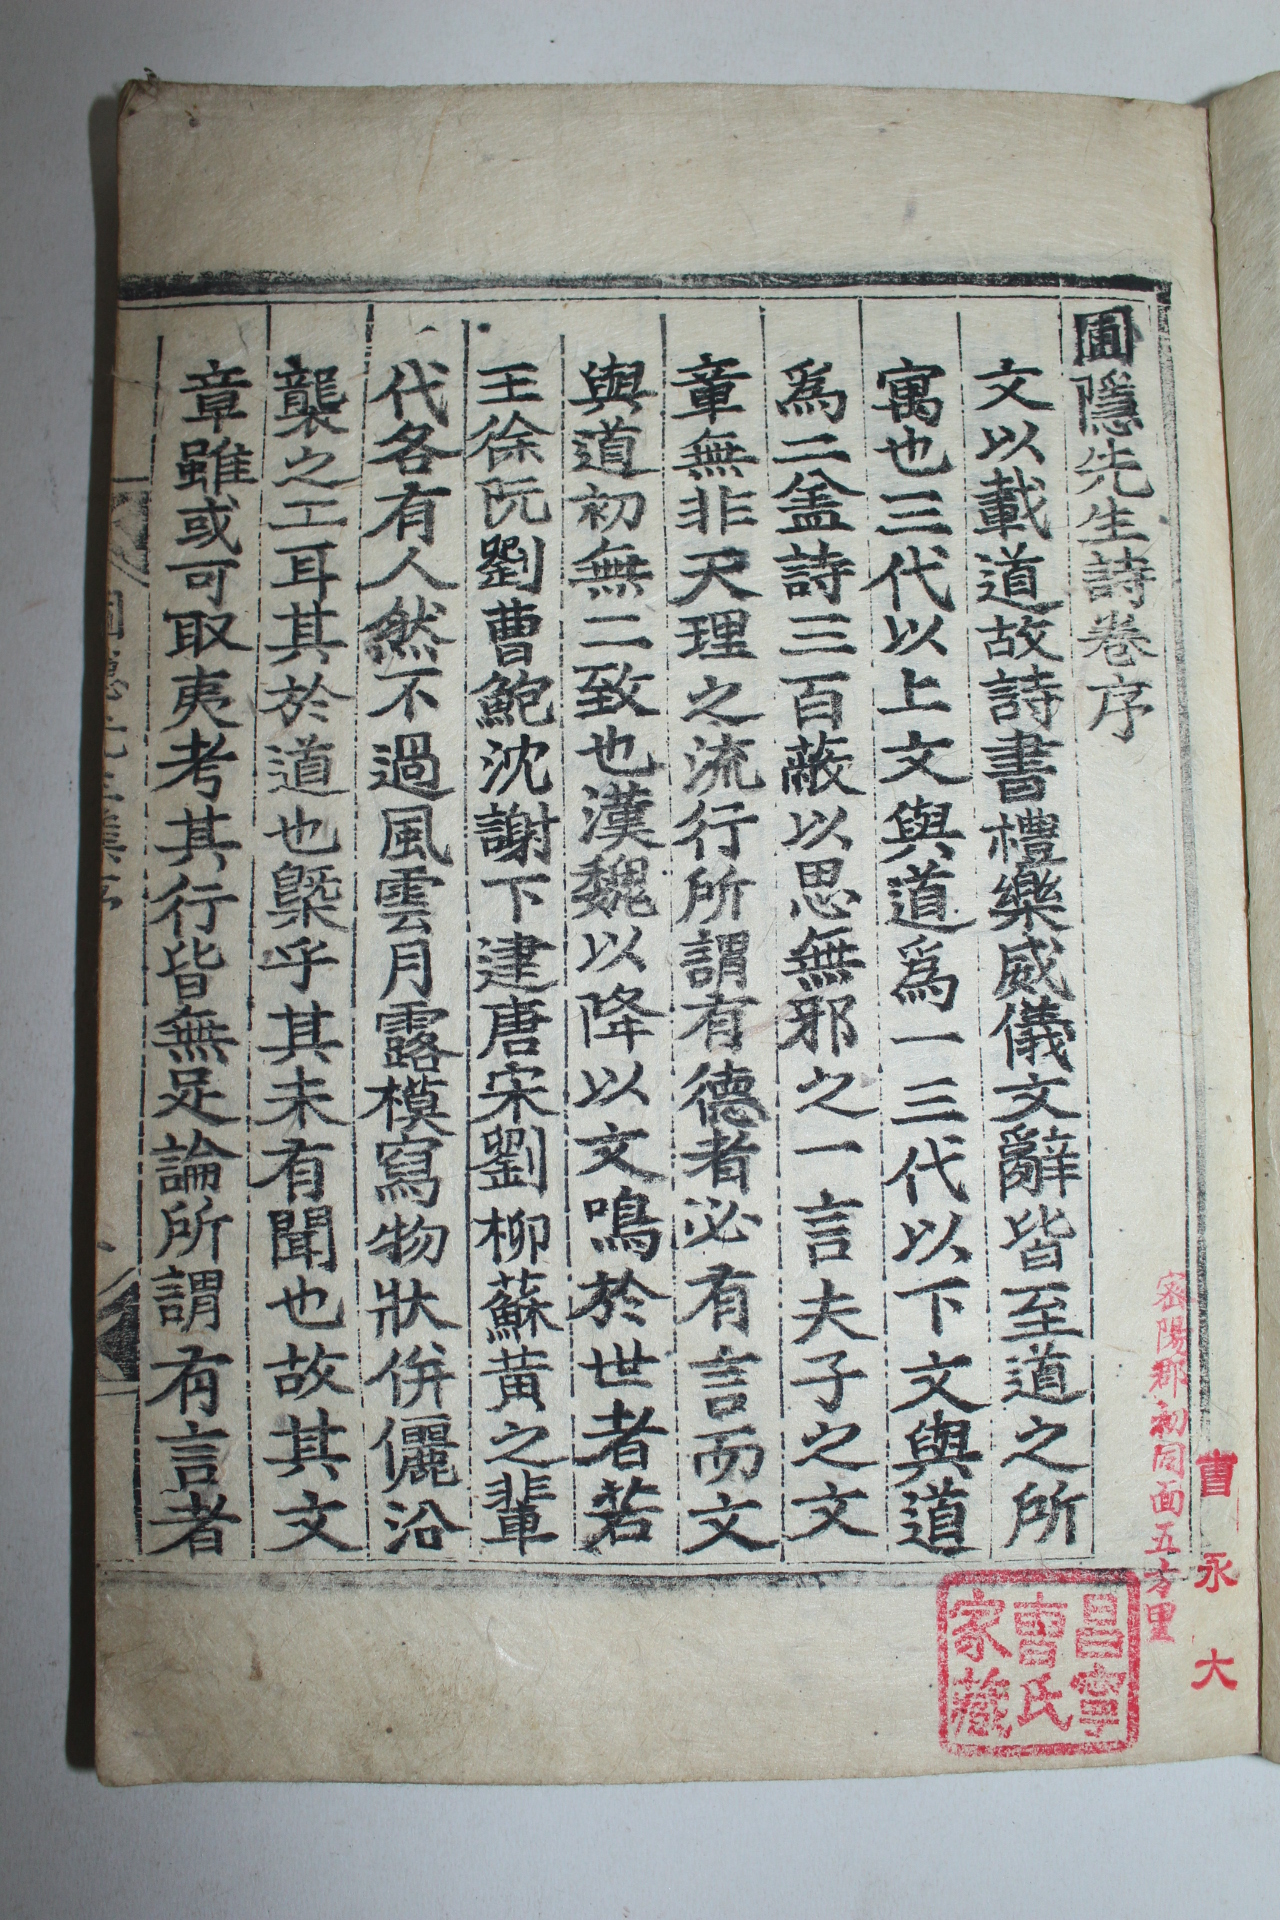 圃隱先生詩卷序
文以載道故詩書禮樂威儀文辭皆至道之所
寓也三代以上文與道爲一三代以下文與道
爲二盖詩三百蔽以思無邪之一言夫子之文
章無非天理之流行所謂有德者必有言而文
與道初無二致也漢魏以降以文鳴於世者若
王徐阮劉曹鮑沈謝下逮唐宋劉柳蘇黃之輩
代各有人然不過風雲月露模寫物狀倂儷沿
襲之工耳其於道也槩乎其未有聞也故其文
章雖或可取夷考其行皆無足論所謂有言者
密陽郡初同面五方里
曺永大
昌寧
曺氏
家藏